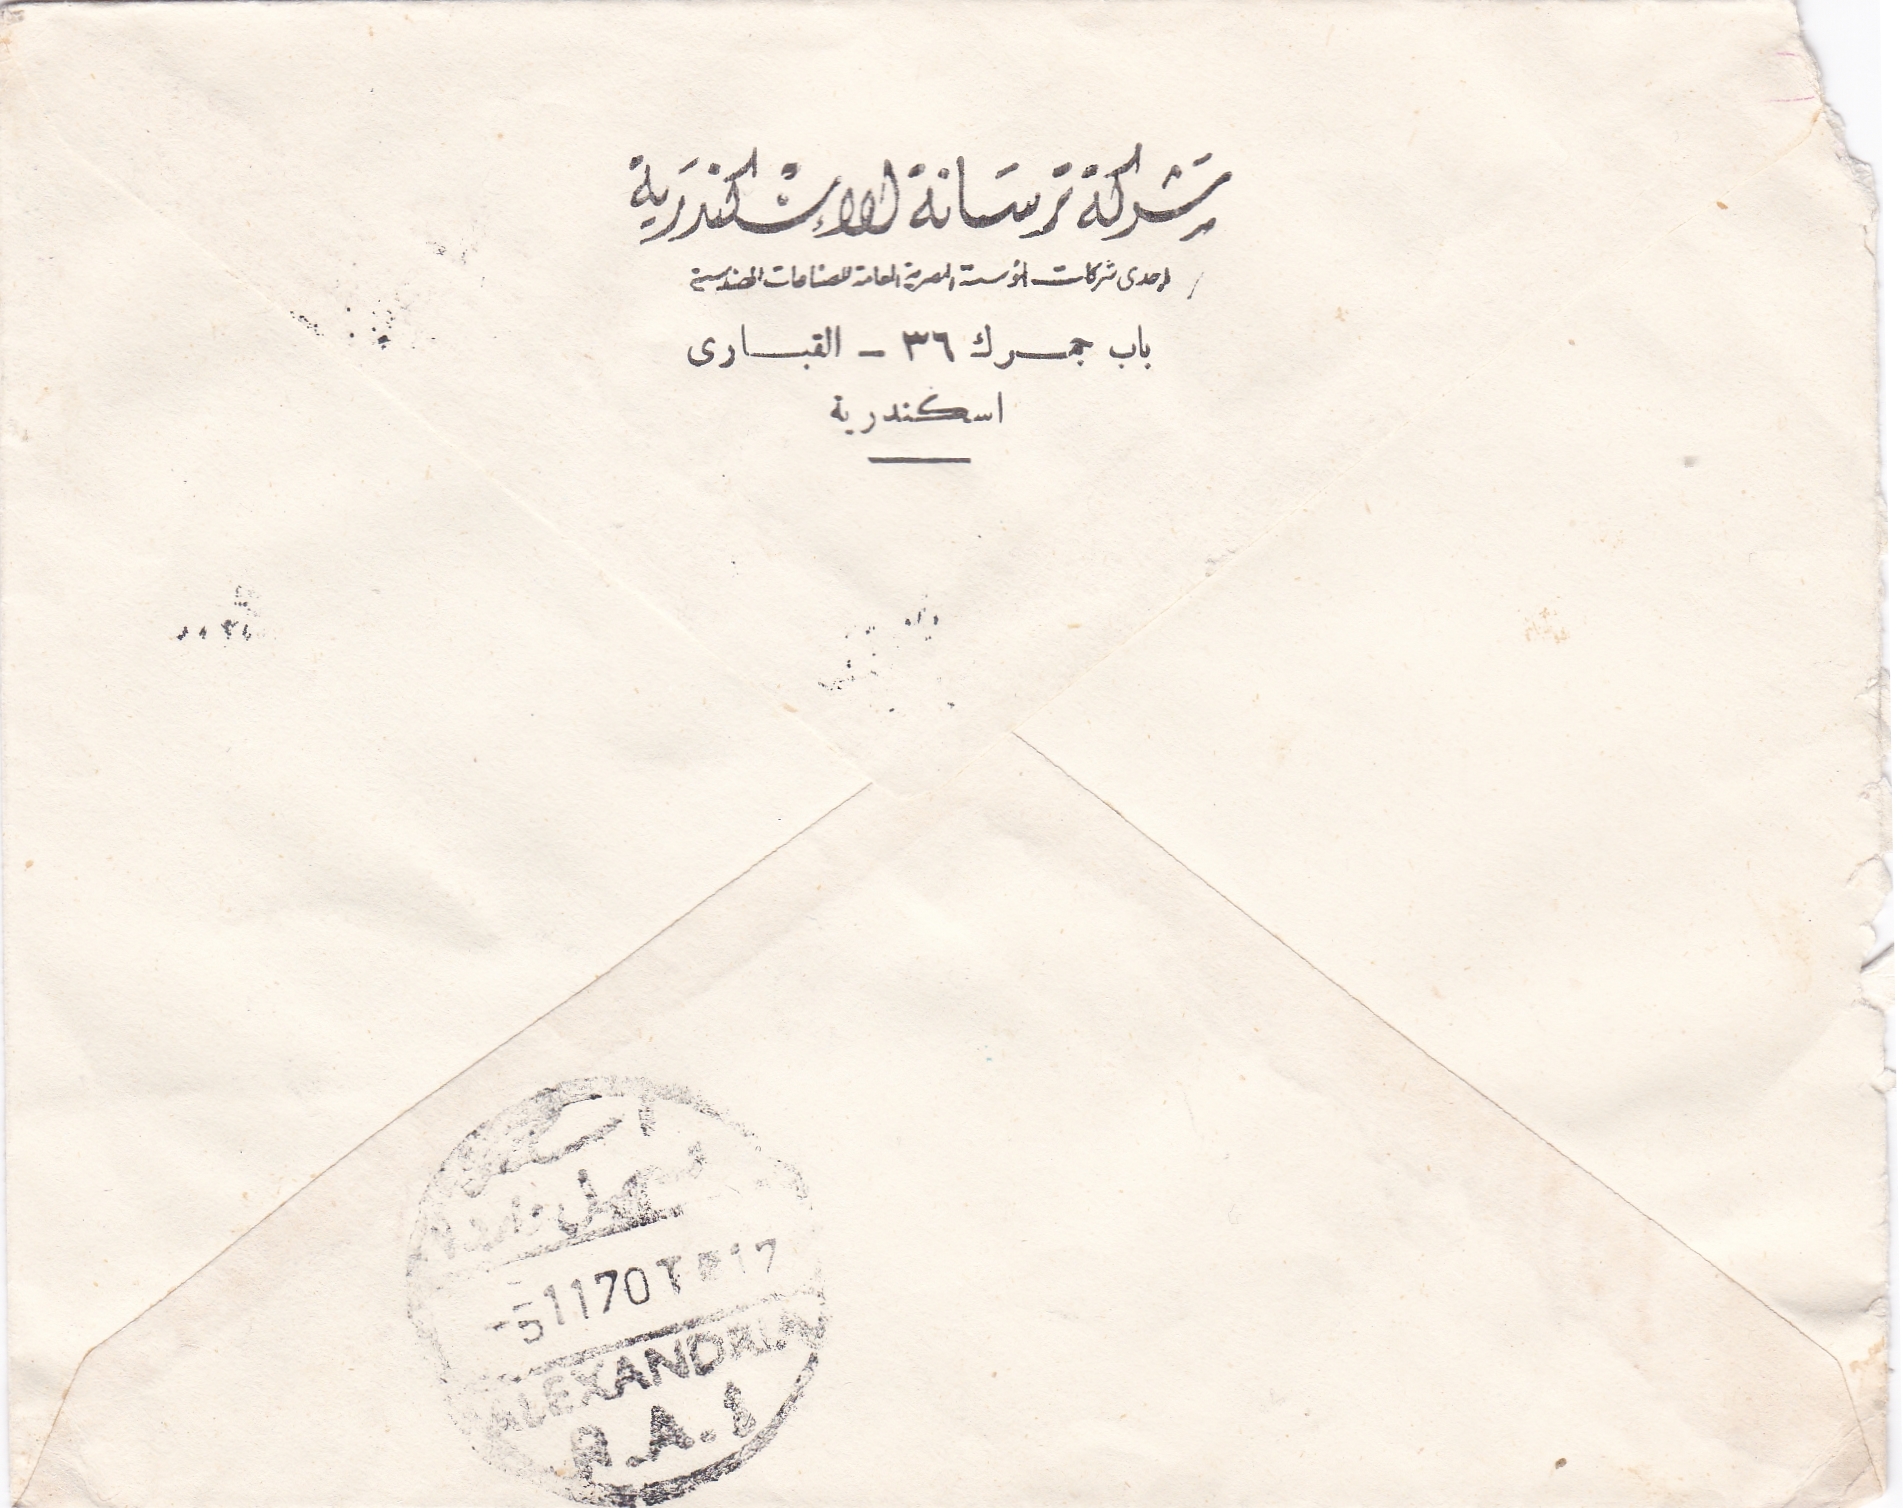 شركة ترسانة الإسكندرية
إحدى شركات المؤسسة المصرية العامة للصناعات الهندسية
باب جمرك ٣٦ - القبارى
اسكندرية
5 11 70
ALEXANDRIA